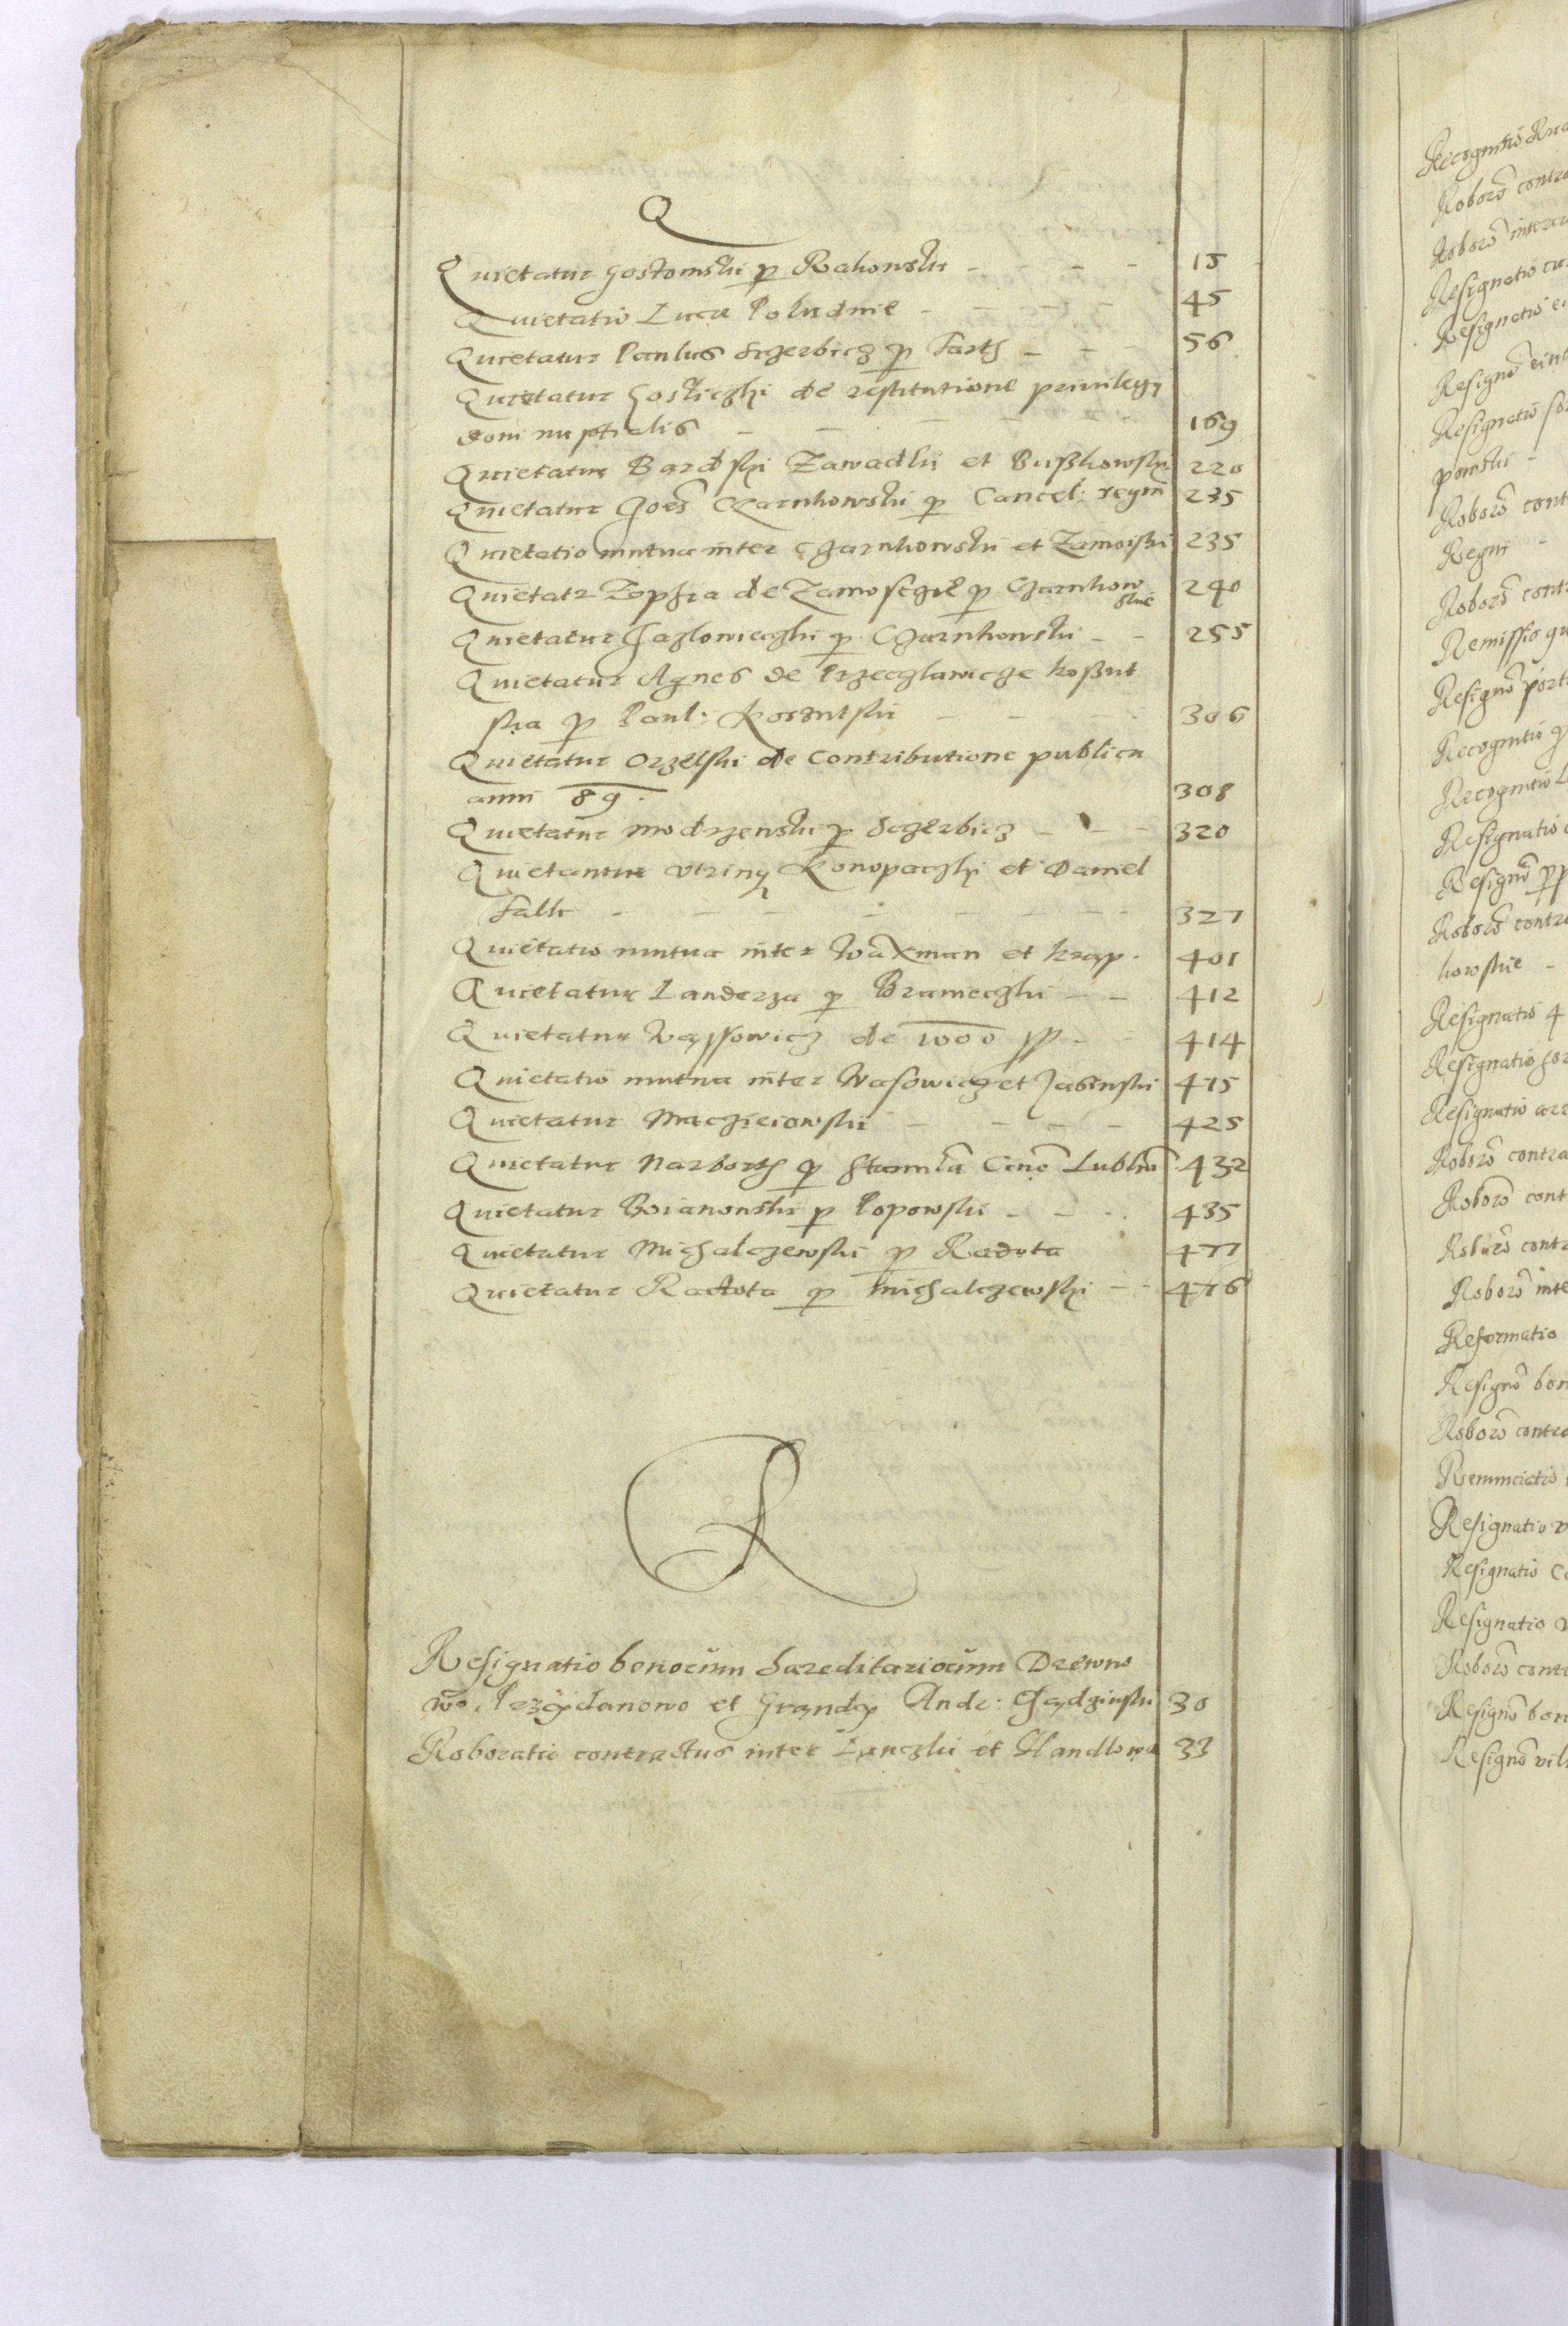 Q
Quietatur Gostomski p Rakowski - - - - 15
Quietatio Lucæ Poludnie - - - - 45
Quietatur Paulus Sczerbicz p Farth - - - 56
Quietatur Gosliczki de restitutione priuilegij
doni nuptialis - - - - - - 169
Quietatur Bardski Zawadki et Bußkowski 220
Quietatur Joēs Czarnkowski p Cancel: regni 235
Quietatio mutua inter Czarnkowski et Zamoiski 235
Quietatr Zophia de Zamoscze p Czarnkow
skie 240
Quietatur Jazlowieczki p Czarnkowski - - 255
Quietatur Agnes de Przeczlawicze koßut
ska p Paul: Korsutski - - - 306
Quietatur Orzelski de Contributione publica
anni 89. 308
Quietatur Modrzewski p Sczerbicz - - - 320
Quietantur utrinq Konopaczki et Daniel
Falk - - - - - - - 327
Quietatio mutua inter Waxman et Krap. 401
Quietatur Landerza p Branieczki - - 412
Quietatur Wąssowicz de 1000 - 414
Quietatio mutua inter Wasowicz et Jabinski 415
Quietatur Macziciowski - - - - 425
Quietatur Narborth p Stanisla Lublin 432
Quietatur Boianowski p Popowski - - - 435
Quietatur Michalczewski p Radota 477
Quietatur Radota p Michalczewski - - 476
R
Resignatio bonorum hæreditariorum Drewno
wo et Grandy Andr: Gądzinski 30
Roboratio contractus inter Lanczki et Handlowa 33
Recognitio
Roborō contra
Roborō inter
Resignatio
Resignatio
Resignō
Resignatio
powski -
Roborō cont
Regni -
Roborō cont
Remissio
Resignō
Recognitio
Recognitio
Resignatio
Resignō
Roborō contra
kowskie -
Resignatio 4
Resignatio
Resignatio
Roborō contra
Roborō cont
Roborō contr
Roborō inte
Reformatio
Resignō bon
Roborō contra
Renunciatio
Resignatio
Resignatio
Resignatio
Roborō contr
Resignō bon
Resignō vill